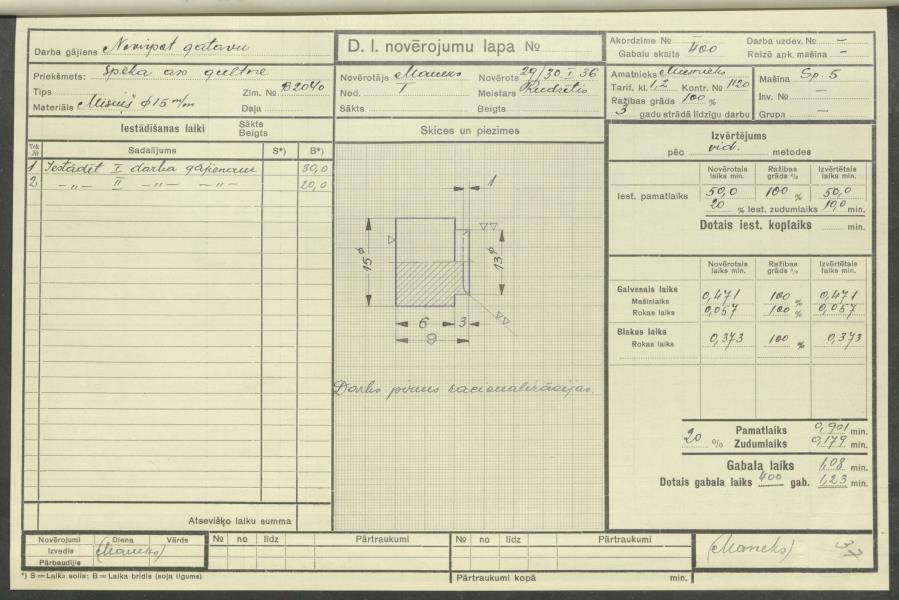 Darba gājiens Novirpot gatavu
Priekšmets:
Tips
Zim. No B2040
Materiāls Misiņš φ15 m/m
Daļa
Iestādīšanas laiki
Sākts
Beigts
Tek. No
Sadalījums
S*)
B*)
1 Iestādīt I darba gājienam 30,0
2 -„- II -„- -„- 20,0
Atsevišķo laiku summa
D. l. novērojumu lapa No
Novērotājs Maneks
Novērots 29/30. I 36
Nod. I
Meistars
Sākts
Beigts
Skices un piezīmes
1
15φ
13φ
6
3
9
Darbs pirms racionalizācijas.
Akordzīme No —
Darba uzdev. No —
Gabalu skaits 400
Reizē apk. mašīna —
Amatnieks
Tarif. kl. 1,2
Kontr. No 1120
Ražības grāds 100 %
3 gadu strādā līdzīgu darbu
Mašīna Sp. 5
Inv. No —
Grupa —
Izvērtējums
pēc vid. metodes
Novērotais laiks min.
Ražības grāds %
Izvērtētais laiks min.
Iest. pamatlaiks 50,0 100 % 50,0
20 % Iest. zudumlaiks 10,0 min.
Dotais iest. koplaiks min.
Novērotais laiks min.
Ražības grāds %
Izvērtētais laiks min.
Galvenais laiks
Mašīnlaiks 0,471 100 % 0,471
Rokas laiks 0,057 100 % 0,057
Blakus laiks
Rokas laiks 0,373 100 % 0,373
Pamatlaiks 0,901 min.
20 % Zudumlaiks 0,179 min.
Gabala laiks 1,08 min.
Dotais gabala laiks 400 gab. 1,23 min.
Novērojumi
Diena
Vārds
Izvedis (Maneks)
Pārbaudījis
No
no
līdz
Pārtraukumi
No
no
līdz
Pārtraukumi
Pārtraukumi kopā min.
(Maneks)
37
*) S = Laiks solis; B = Laika brīdis (soļa ilgums)